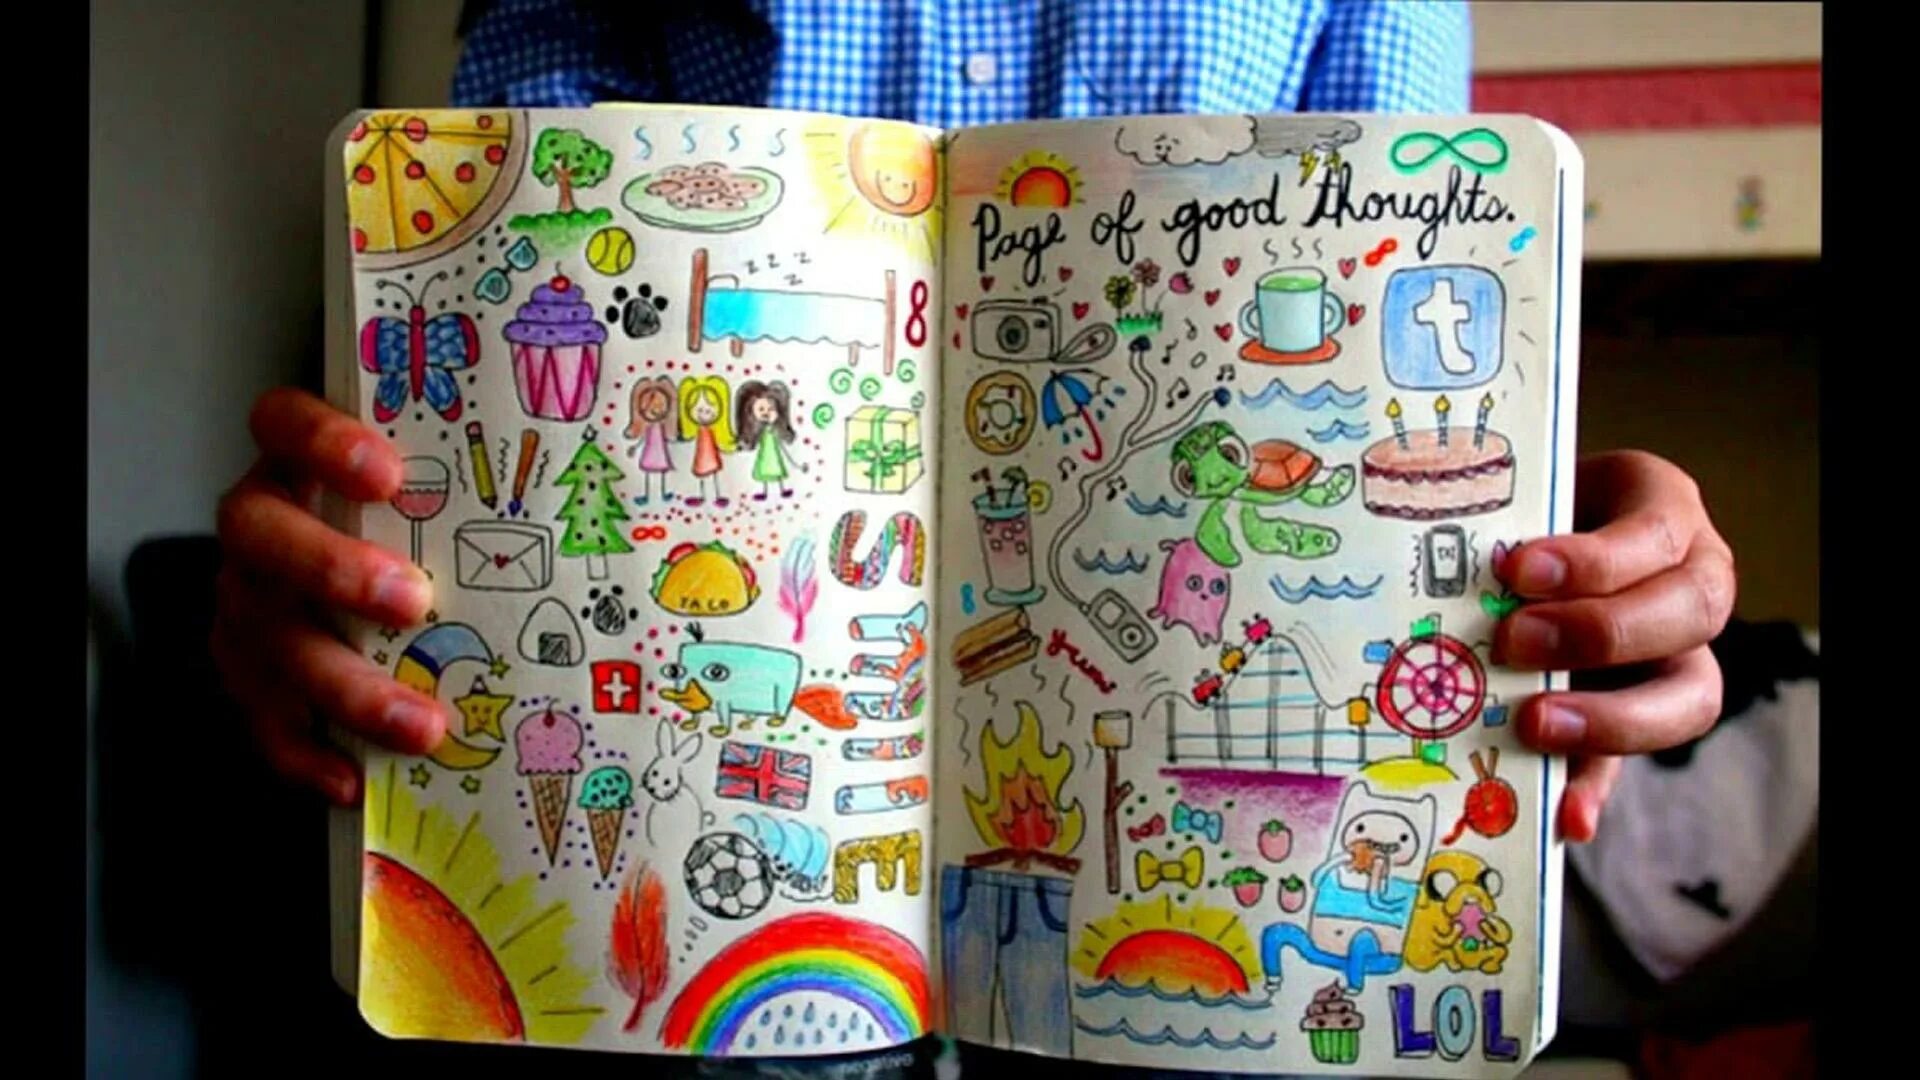 Page of good thoughts.
z z z
t
TACO
SMILE
TXT
yum
LOL